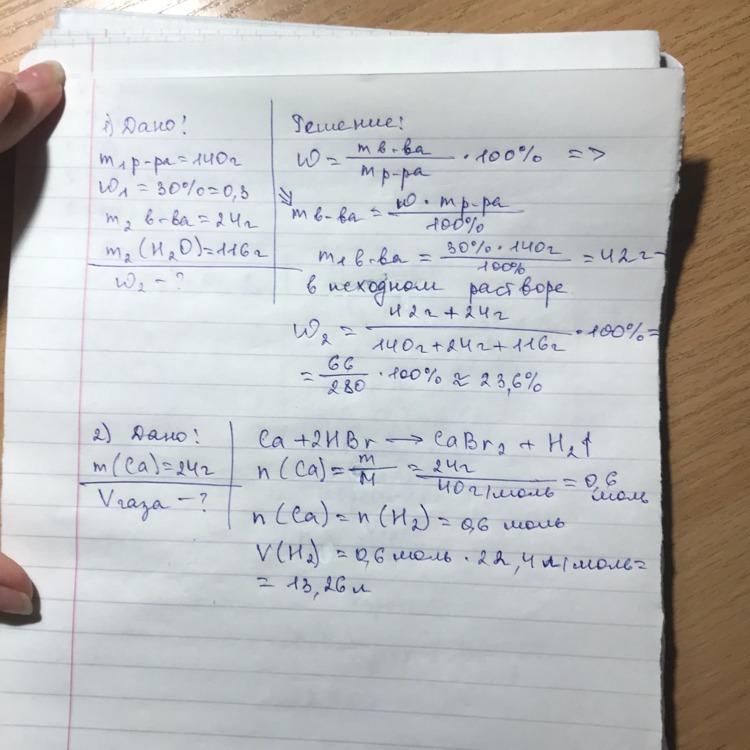 1) Дано!
m₁ р-ра = 140г
ω₁ = 30% = 0,3
m₂ в-ва = 24г
m₂ (H₂O) = 116г
ω₂ - ?
Решение!
ω = m в-ва / m р-ра · 100% =>
=> m в-ва = ω · m р-ра / 100%
m₁ в-ва = 30% · 140г / 100% = 42г -
в исходном растворе
ω₂ = 42г + 24г / 140г + 24г + 116г · 100% =
= 66 / 280 · 100% ≈ 23,6%
2) Дано!
m (Ca) = 24г
Vгаза - ?
Ca + 2HBr → CaBr₂ + H₂↑
n (Ca) = m / M = 24г / 40г/моль = 0,6 моль
n (Ca) = n (H₂) = 0,6 моль
V (H₂) = 0,6 моль · 22,4 л/моль =
= 13,26 л